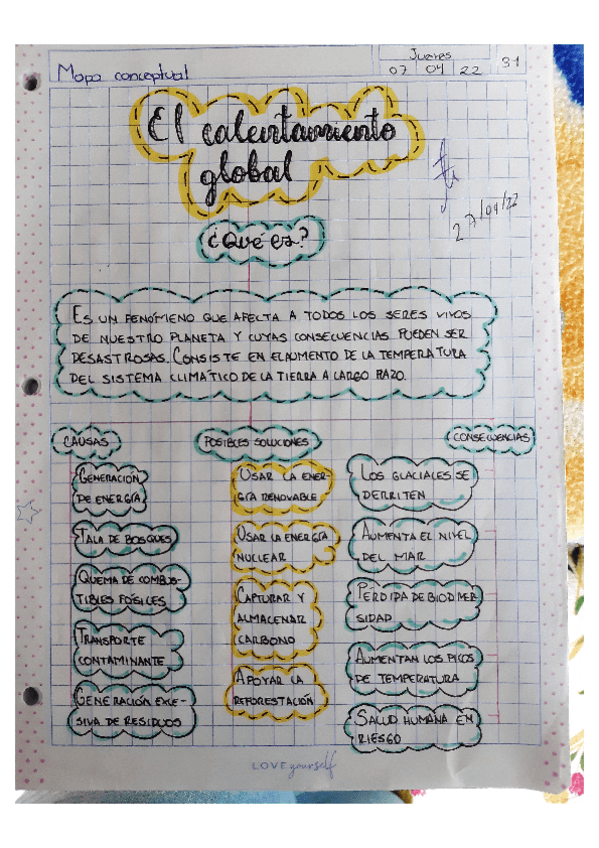 Mapa conceptual
Jueves
07 04 22
31
El calentamiento
global
27/04/22
¿Qué es?
ES UN FENÓMIENO QUE AFECTA A TODOS LOS SERES VIVOS
DE NUESTRO PLANETA Y CUYAS CONSECUENCIAS PUEDEN SER
DESASTROSAS. CONSISTE EN EL AUMENTO DE LA TEMPERATURA
DEL SISTEMA CLIMÁTICO DE LA TIERRA A LARGO PLAZO.
CAUSAS
GENERACIÓN
DE ENERGÍA
TALA DE BOSQUES
QUEMA DE COMBUS-
TIBLES FÓSILES
TRANSPORTE
CONTAMINANTE
GENERACIÓN EXCE-
SIVA DE RESIDUOS
POSIBLES SOLUCIONES
USAR LA ENER-
GÍA RENOVABLE
USAR LA ENERGÍA
NUCLEAR
CAPTURAR Y
ALMACENAR
CARBONO
APOYAR LA
REFORESTACIÓN
CONSECUENCIAS
LOS GLACIALES SE
DERRITEN
AUMENTA EL NIVEL
DEL MAR
PÉRDIDA DE BIODIVER
SIDAD
AUMENTAN LOS PICOS
DE TEMPERATURA
SALUD HUMANA EN
RIESGO
LOVE yourself